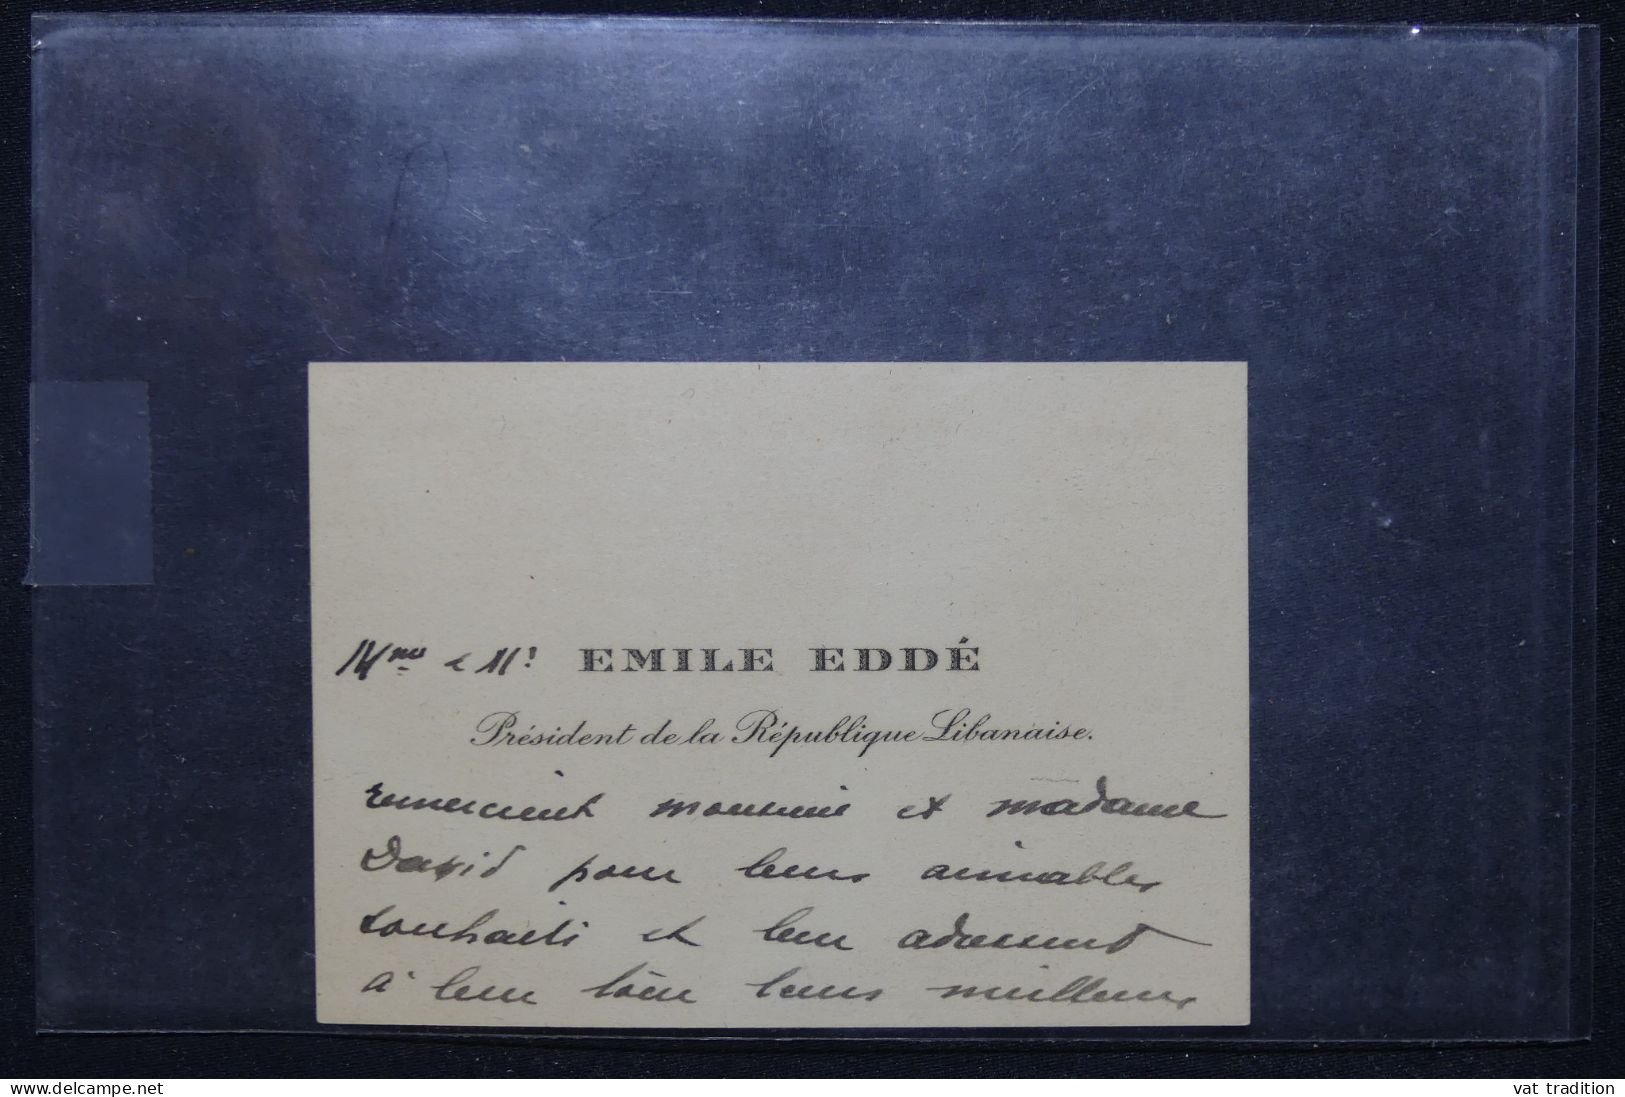 Mme & Mr EMILE EDDÉ
Président de la République Libanaise.
remercient monsieur et madame
David pour leurs aimables
souhaits et leur adressent
à leur tour leurs meilleurs
www.delcampe.net
vat_tradition